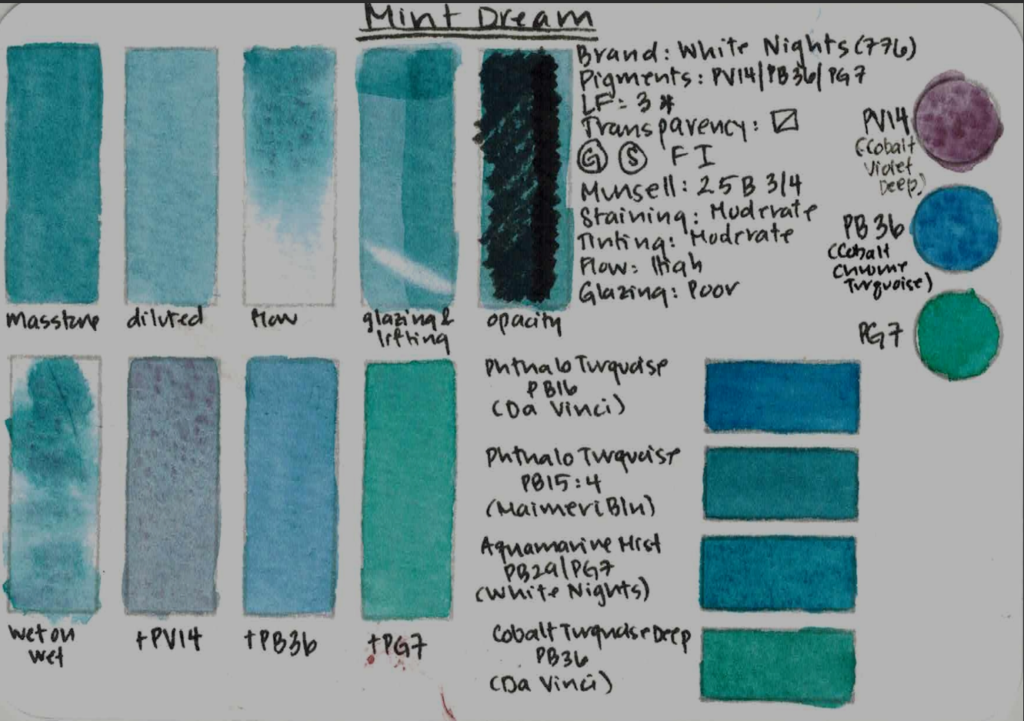 Mint Dream
Brand: White Nights (776)
Pigments: PV14/PB36/PG7
LF: 3 *
Transparency:
G S F I
Munsell: 2.5B 3/4
Staining: Moderate
Tinting: Moderate
Flow: High
Glazing: Poor
PV14
(Cobalt
Violet
Deep)
PB36
(Cobalt
Chrome
Turquoise)
PG7
masstone
diluted
flow
glazing &
lifting
opacity
wet on
wet
+PV14
+PB36
+PG7
Phthalo Turquoise
PB16
(Da Vinci)
Phthalo Turquoise
PB15:4
(MaimeriBlu)
Aquamarine Mist
PB29/PG7
(White Nights)
Cobalt Turquoise Deep
PB36
(Da Vinci)